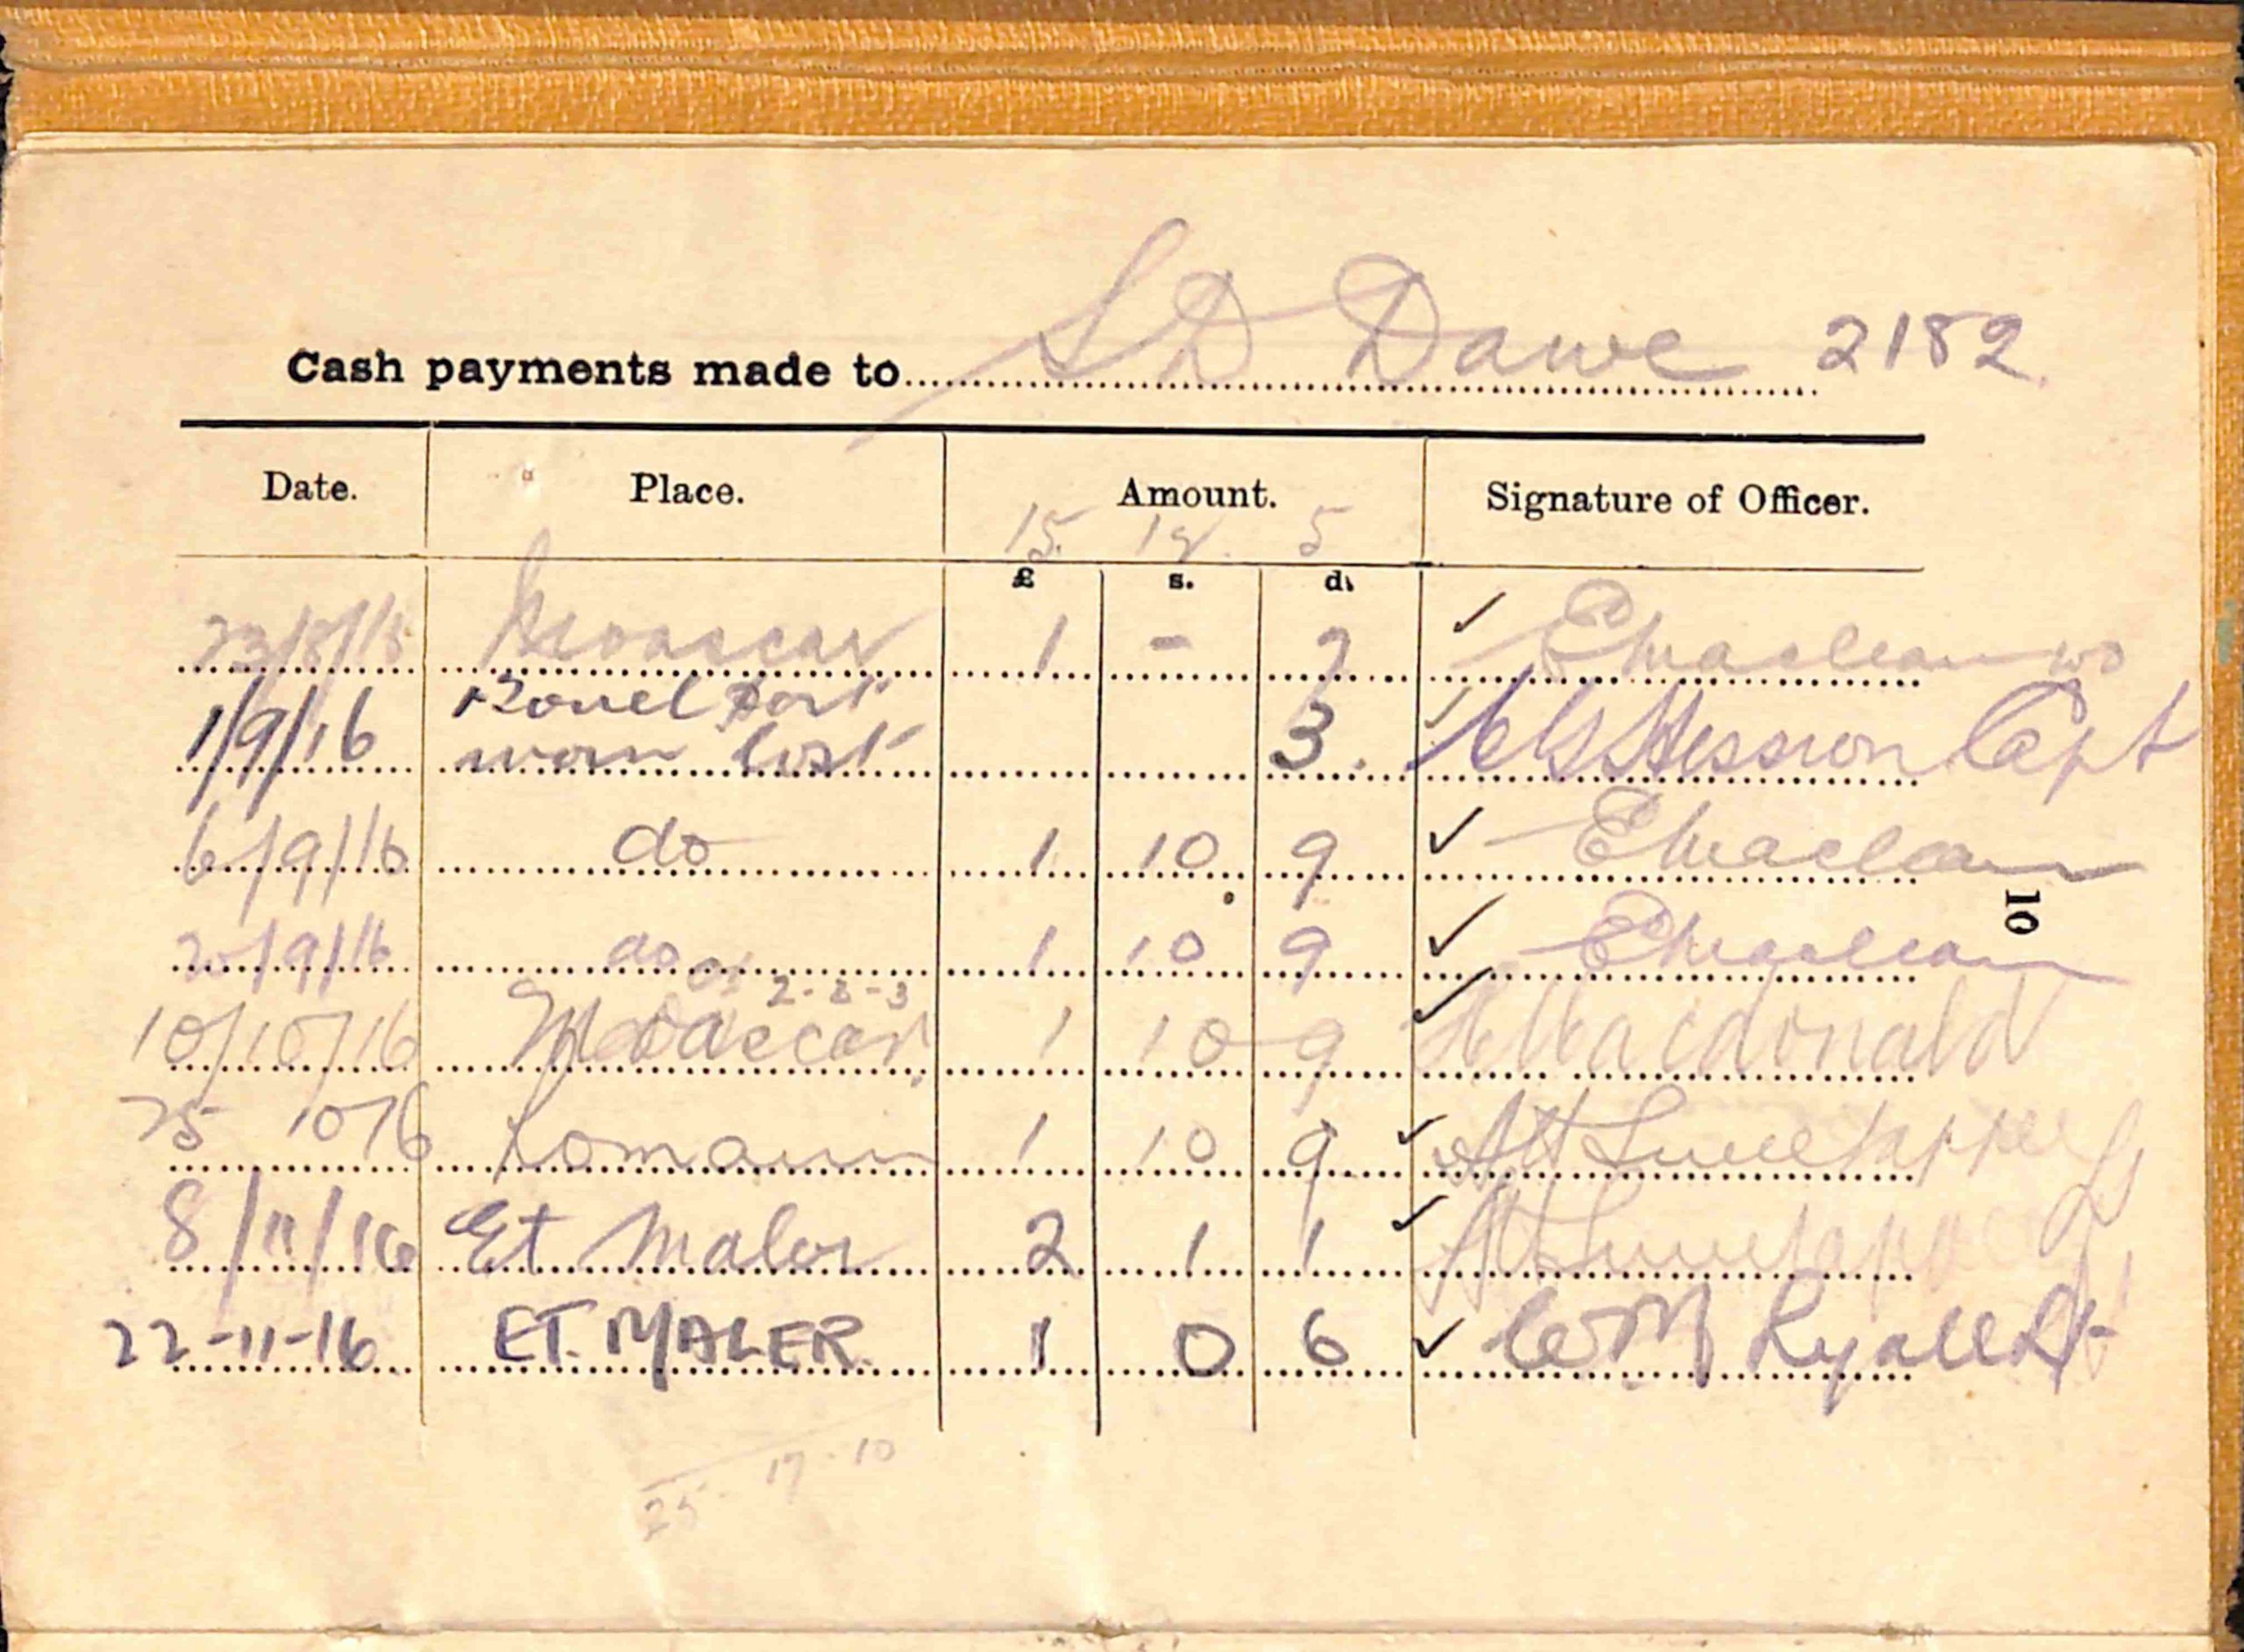 Cash payments made to S D Dawe 2182
Date. Place. Amount. Signature of Officer.
15. 5
£ s. d.
1 - EMaclean
1/9/16 worn lost 3. Capt
6/9/16 do 1 10 9 EMaclean
20/9/16 do 1 10 9 EMaclean
2-8-3
10/10/16 Moascar 1 10 9 Macdonald
25 10 16 Romani 1 10 9
8/11/16 Et Maler 2 1 1
22-11-16 ET. MALER. 1 0 6 Ryall Lt
25 - 17 - 10
10